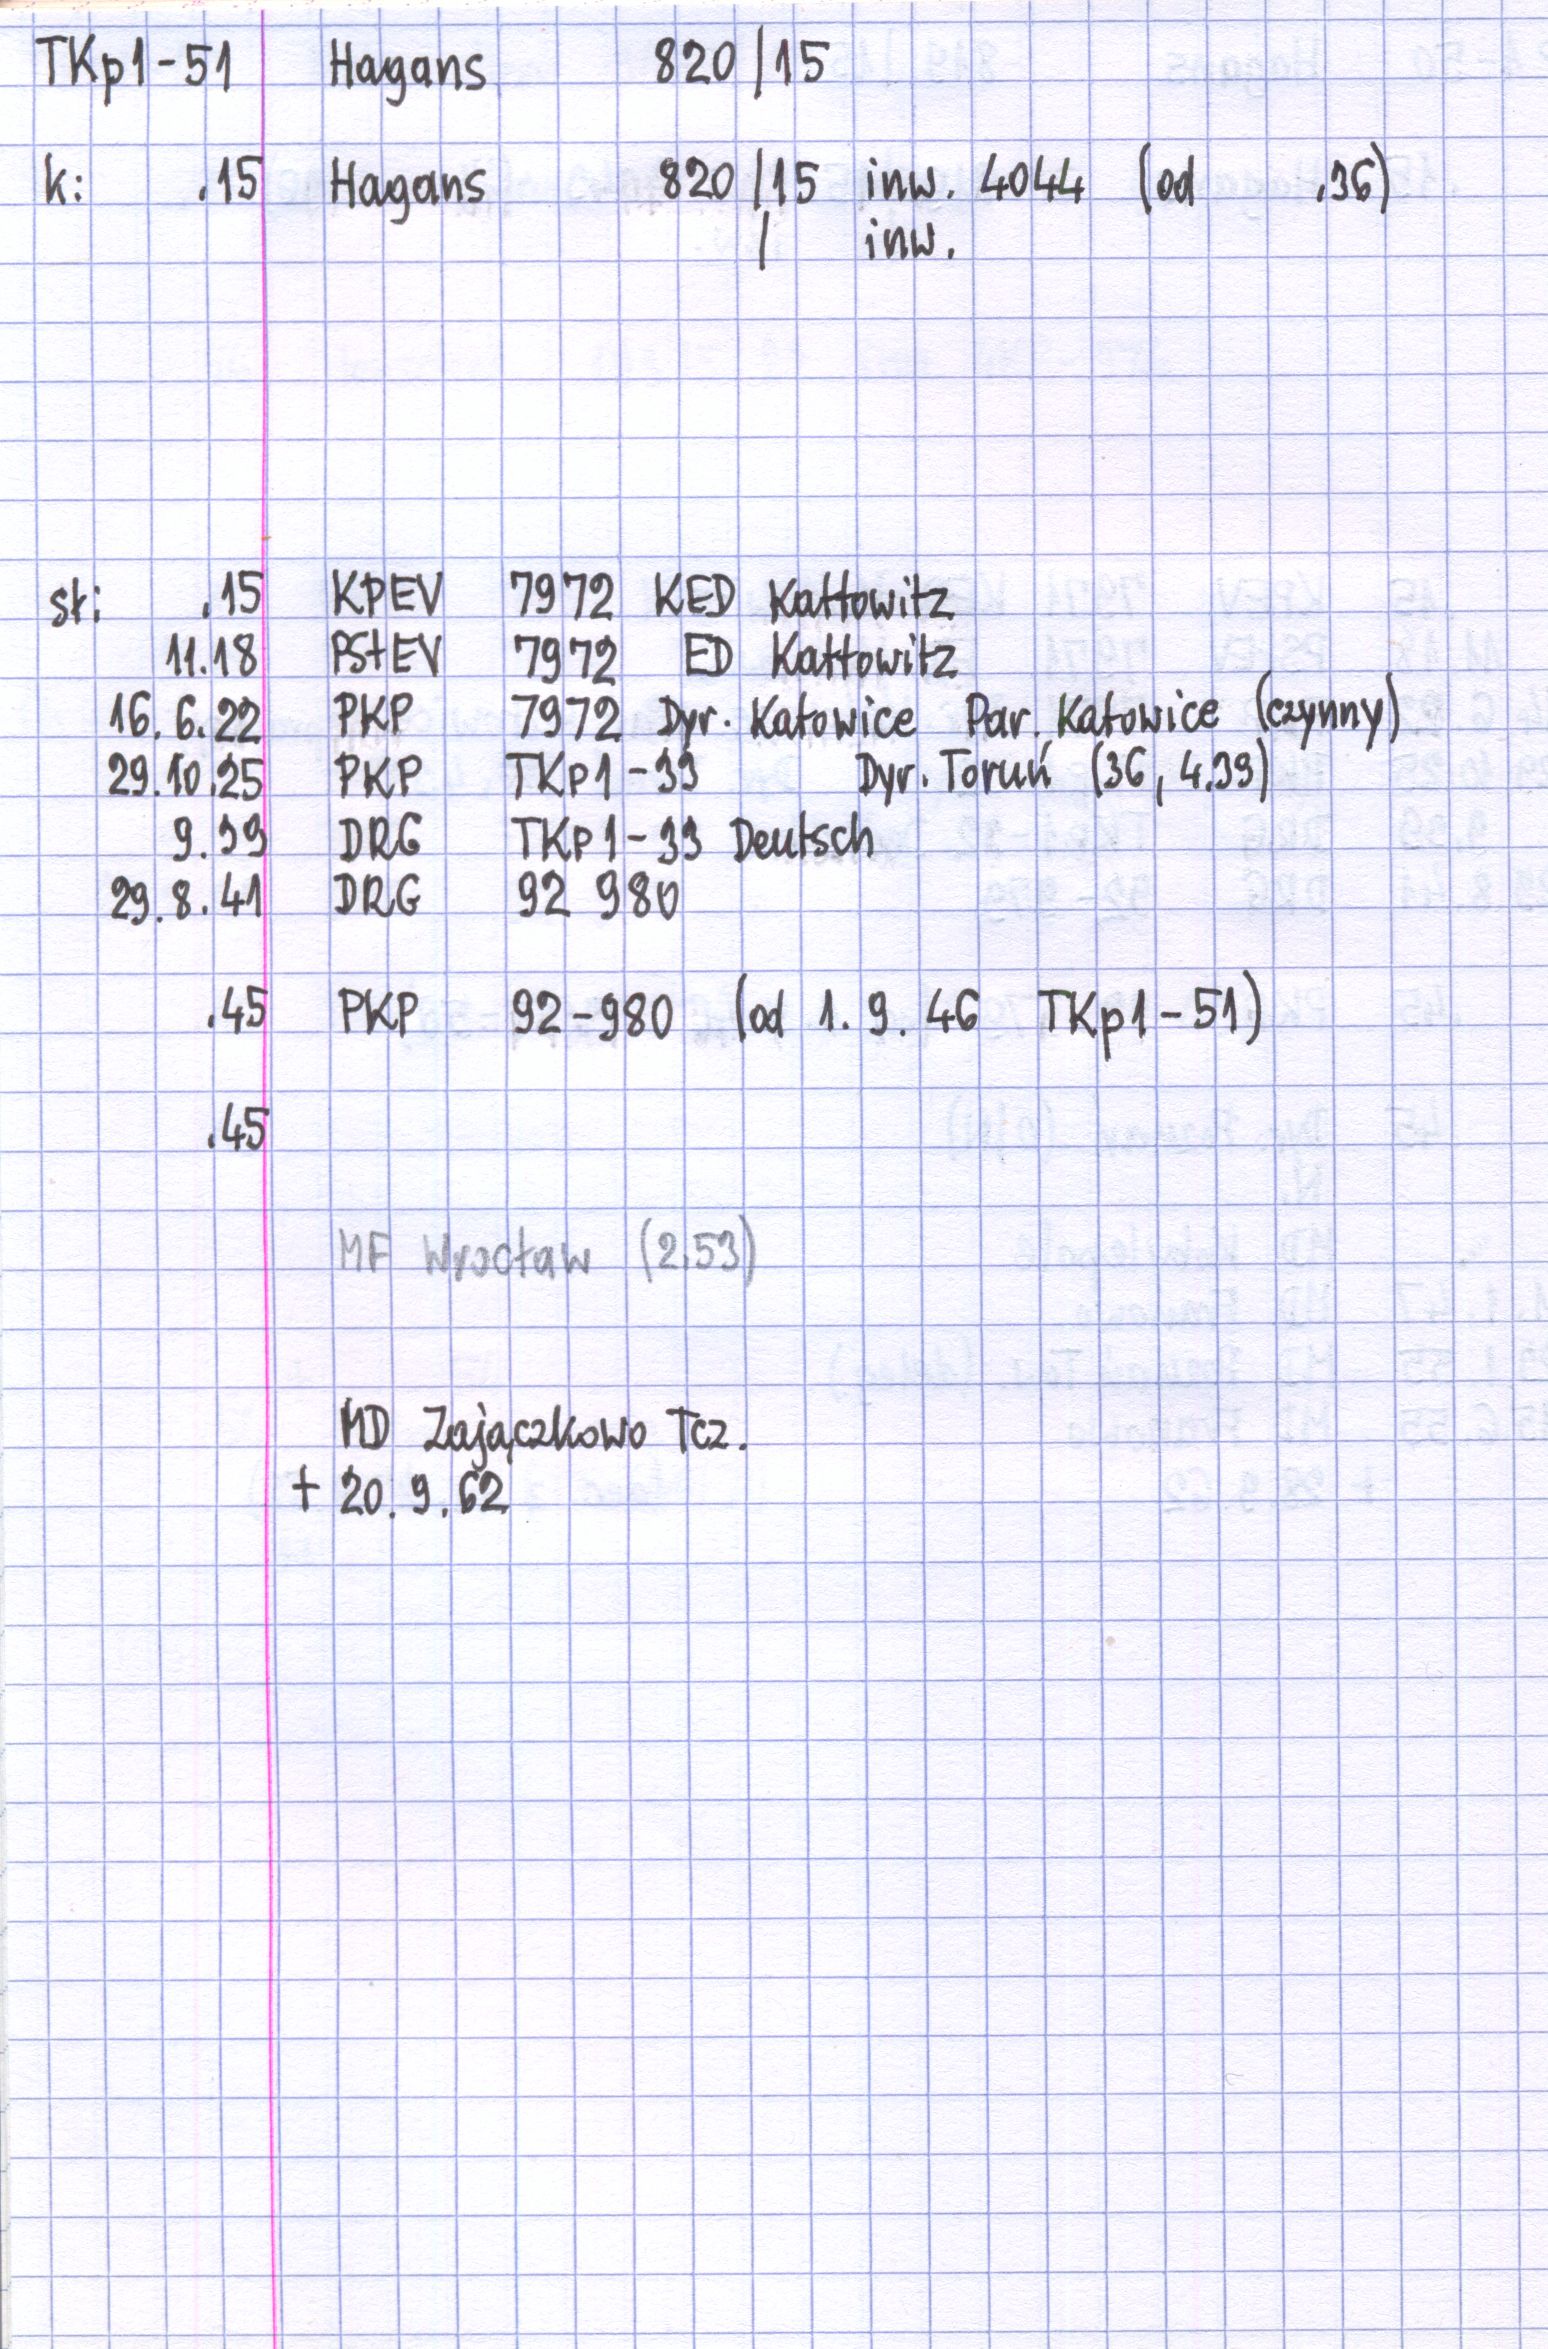 TKp1-51 Hagans 820/15
k: .15 Hagans 820/15 inw. 4044 (od .36)
/ inw.
st: .15 KPEV 7972 KED Kattowitz
11.18 PStEV 7972 ED Kattowitz
16.6.22 PKP 7972 Dyr. Katowice Par. Katowice (czynny)
29.10.25 PKP TKp1-33 Dyr. Toruń (36, 4.39)
9.39 DRG TKp1-33 Deutsch
29.8.41 DRG 92 980
.45 PKP 92-980 (od 1.9.46 TKp1-51)
.45
MF Wrocław (2.53)
MD Zajączkowo Tcz.
+ 20.9.62